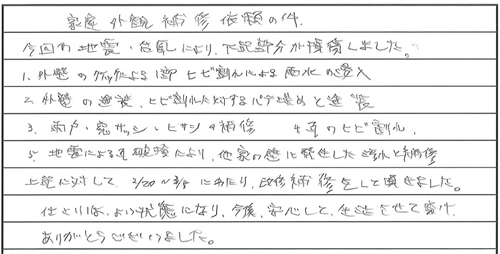 家屋外観補修依頼の件.
今回の地震・台風により、下記部分が損傷しました。
1. 外壁の クラックによる1部 ヒビ割れによる雨水の浸入
2. 外壁の塗装、ヒビ割れに対するパテ埋めと塗装
3. 雨戸・窓サッシ・ヒサシの補修 4. 瓦のヒビ割れ、
5. 地震による瓦破損により、他家の壁に発生した 補修
上記に対して、2/20〜3/8にわたり、改修補修をして頂きました。
仕上りは、よい状態になり、今後、安心して、生活させて頂け
ありがとうございました。